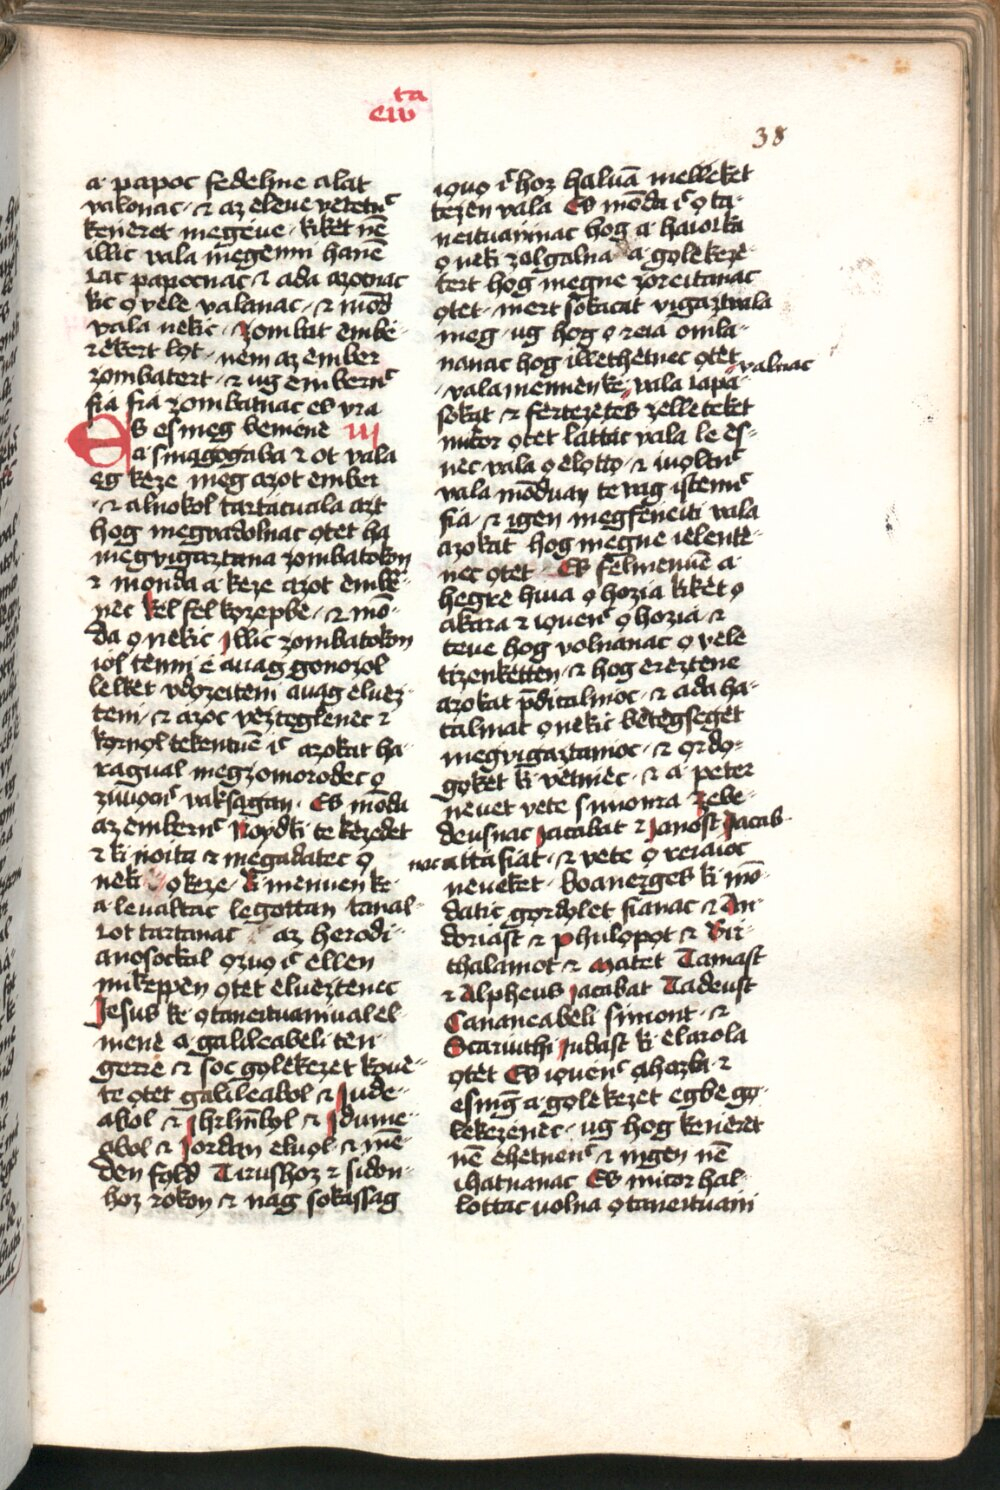 ta
eiv
38
a papoc fedelme alat
valonac · ⁊ az eleue vetetṅc
keńeret megeue · kiket nē
illic vala megenni hanē
čac papocnac ⁊ ada azocnac
kic ọ vele valanac · ⁊ mōd
vala nekic · zombat embė-
rekert lọt · nem az ember
zombatert · ⁊ ug embernc
fia fia zombatnac es vra
Es esmeg bemene III
a sinagogaba ⁊ ot vala
eg keze meg azot ember
· ⁊ alnokol tartacuala azt
hog megvadolnac ọtet ha
megvigaztana zombatokon
⁊ monda a keze azot embė-
nec kel fel kọzepbe · ⁊ mō-
da ọ nekic Illic zombatokon
iol tenni ė auag gonozol
lelket vdọzeiteni auag eluez-
teni · ⁊ azoc veztegleńec ⁊
kọrńọl tekentuē ic azokat ha-
raguual megzomorodec ọ
ziuọcnc vaksagan · Es mōda
az embernc Noyọdki te kezedet
⁊ ki ńoita ⁊ megadatec ọ
neki ọ keze · Ki menuen ke-
a leualtac legottan tanal-
čot tartanac az herodi-
anosockal ọzuọ ic ellen
mikeppen ọtet elueztenec
Jesus ke ọ taneituaniual el-
mene a galileabeli ten-
gerre ⁊ soc gọlekezet kọue-
te ọtet galileabol ⁊ Jude-
abol ⁊ Jhrlmbọl ⁊ Idume-
abol ⁊ Jordan eluọl · ⁊ mē-
den fọld Tirushoz ⁊ sidon-
hoz zokon ⁊ nag sokassag
iọuọ ic hoz haluā melleket
tezen vala Es mōda ic ọ ta-
neituaninac hog a haiocka
ọ neki zolgalna a gọlekeze-
tert hog megne zoreitanac
ọtet · mert sokacat vigaztuala
meg · ug hog ọ reia omla-
nanac hog illethetnec ọtet valnac
· vala mennenke vala čapa-
sokat ⁊ fertezetes zelleteket
micor ọtet lattac vala le es-
nec vala ọ elọtto · ⁊ iuọltnc
vala mōduan te vag istennc
fia · ⁊ igen megfeneiti vala
azokat hog megne ielente-
nec ọtet Es felmenuē a
hegre hiua ọ hozia kiket ọ
akara ⁊ iọuenc ọ hozia · ⁊
teue hog volnanac ọ vele
tizenketten · ⁊ hog erezteńe
azokat pdicalnioc · ⁊ ada ha-
talmat ọ nekic betegseget
megvigaztanioc · ⁊ ọrdọ-
gọket ki vetniec · ⁊ a peter
neuet vete simonra Zebe-
deusnac Jacabat ⁊ Janost Jacab
nac attafiat · ⁊ vete ọ reiaioc
neueket · boanerges ki mō-
datic gọrdọlet fianac ⁊ An-
doriast ⁊ philọpọt ⁊ Bir-
thalamot ⁊ Matet Tamast
⁊ Alpheus Jacabat Tadeust
Cananeabeli simont · ⁊
Scariuthi Judast ki elarola
ọtet Es iọuenc a hazba · ⁊
esmg a gọlekezet egbe gọ-
lekezenec · ug hog keńeret
nē ehetnenc ⁊ ingen nē
ihatnanac Es micor hal-
lottac uolna ọ taneituani